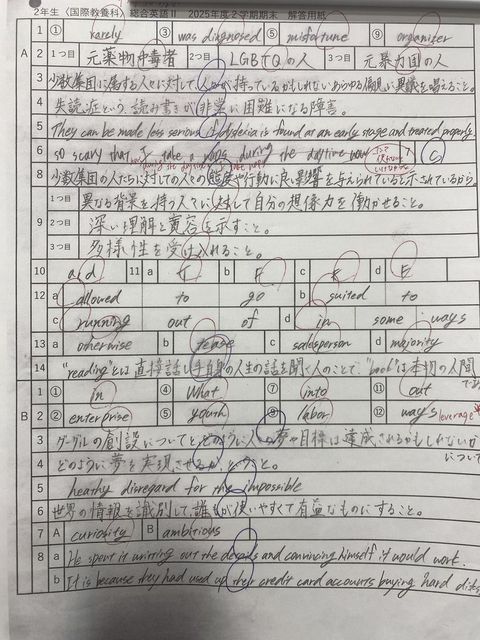 2年生〈国際教養科〉総合英語Ⅱ 2025年度2学期期末 解答用紙
A
1 ① rarely ③ was diagnosed ⑤ misfortune ⑨ organizer
2 1つ目 元薬物中毒者 2つ目 LGBTQの人 3つ目 元暴力団の人
3 少数集団に属する人々に対して人々が持っているかもしれないあらゆる偏見に異議を唱えること。
4 失読症という読み書きが非常に困難になる障害。
5 They can be made less serious if dyslexia is found at an early stage and treated properly
6 so scary that I take a naps during the daytime now 7 C
8 少数集団の人たちに対しての人々の態度や行動に良い影響を与えられていると示されているから。
9 1つ目 異なる背景を持つ人々に対して自分の想像力を働かせること。
2つ目 深い理解と寛容を示すこと。
3つ目 多様性を受け入れること。
10 a, d 11 a T b F c F d F
12 a allowed to go b suited to
c running out of d in some ways
13 a otherwise b tease c salesperson d majority
14 "reading"とは直接話し手自身の人生の話を聞くことで、"book"は本物の人間
B
1 ① in ④ What ⑦ into ⑪ out
2 ② enterprise ⑤ youth ⑨ labor ⑫ ways leverage
3 グーグルの創設についてと、どのように人々の夢や目標は達成されるかもしれないか
について
4 どのように夢を実現させるかということ。
5 heathy disregard for the impossible
6 世界の情報を識別して誰もが使いやすくて有益なものにすること。
7 A curiosity B ambitious
8 a He spent it writting out the details and convincing himself it would work.
b It is because they had used up their credit card accounts buying hard disks